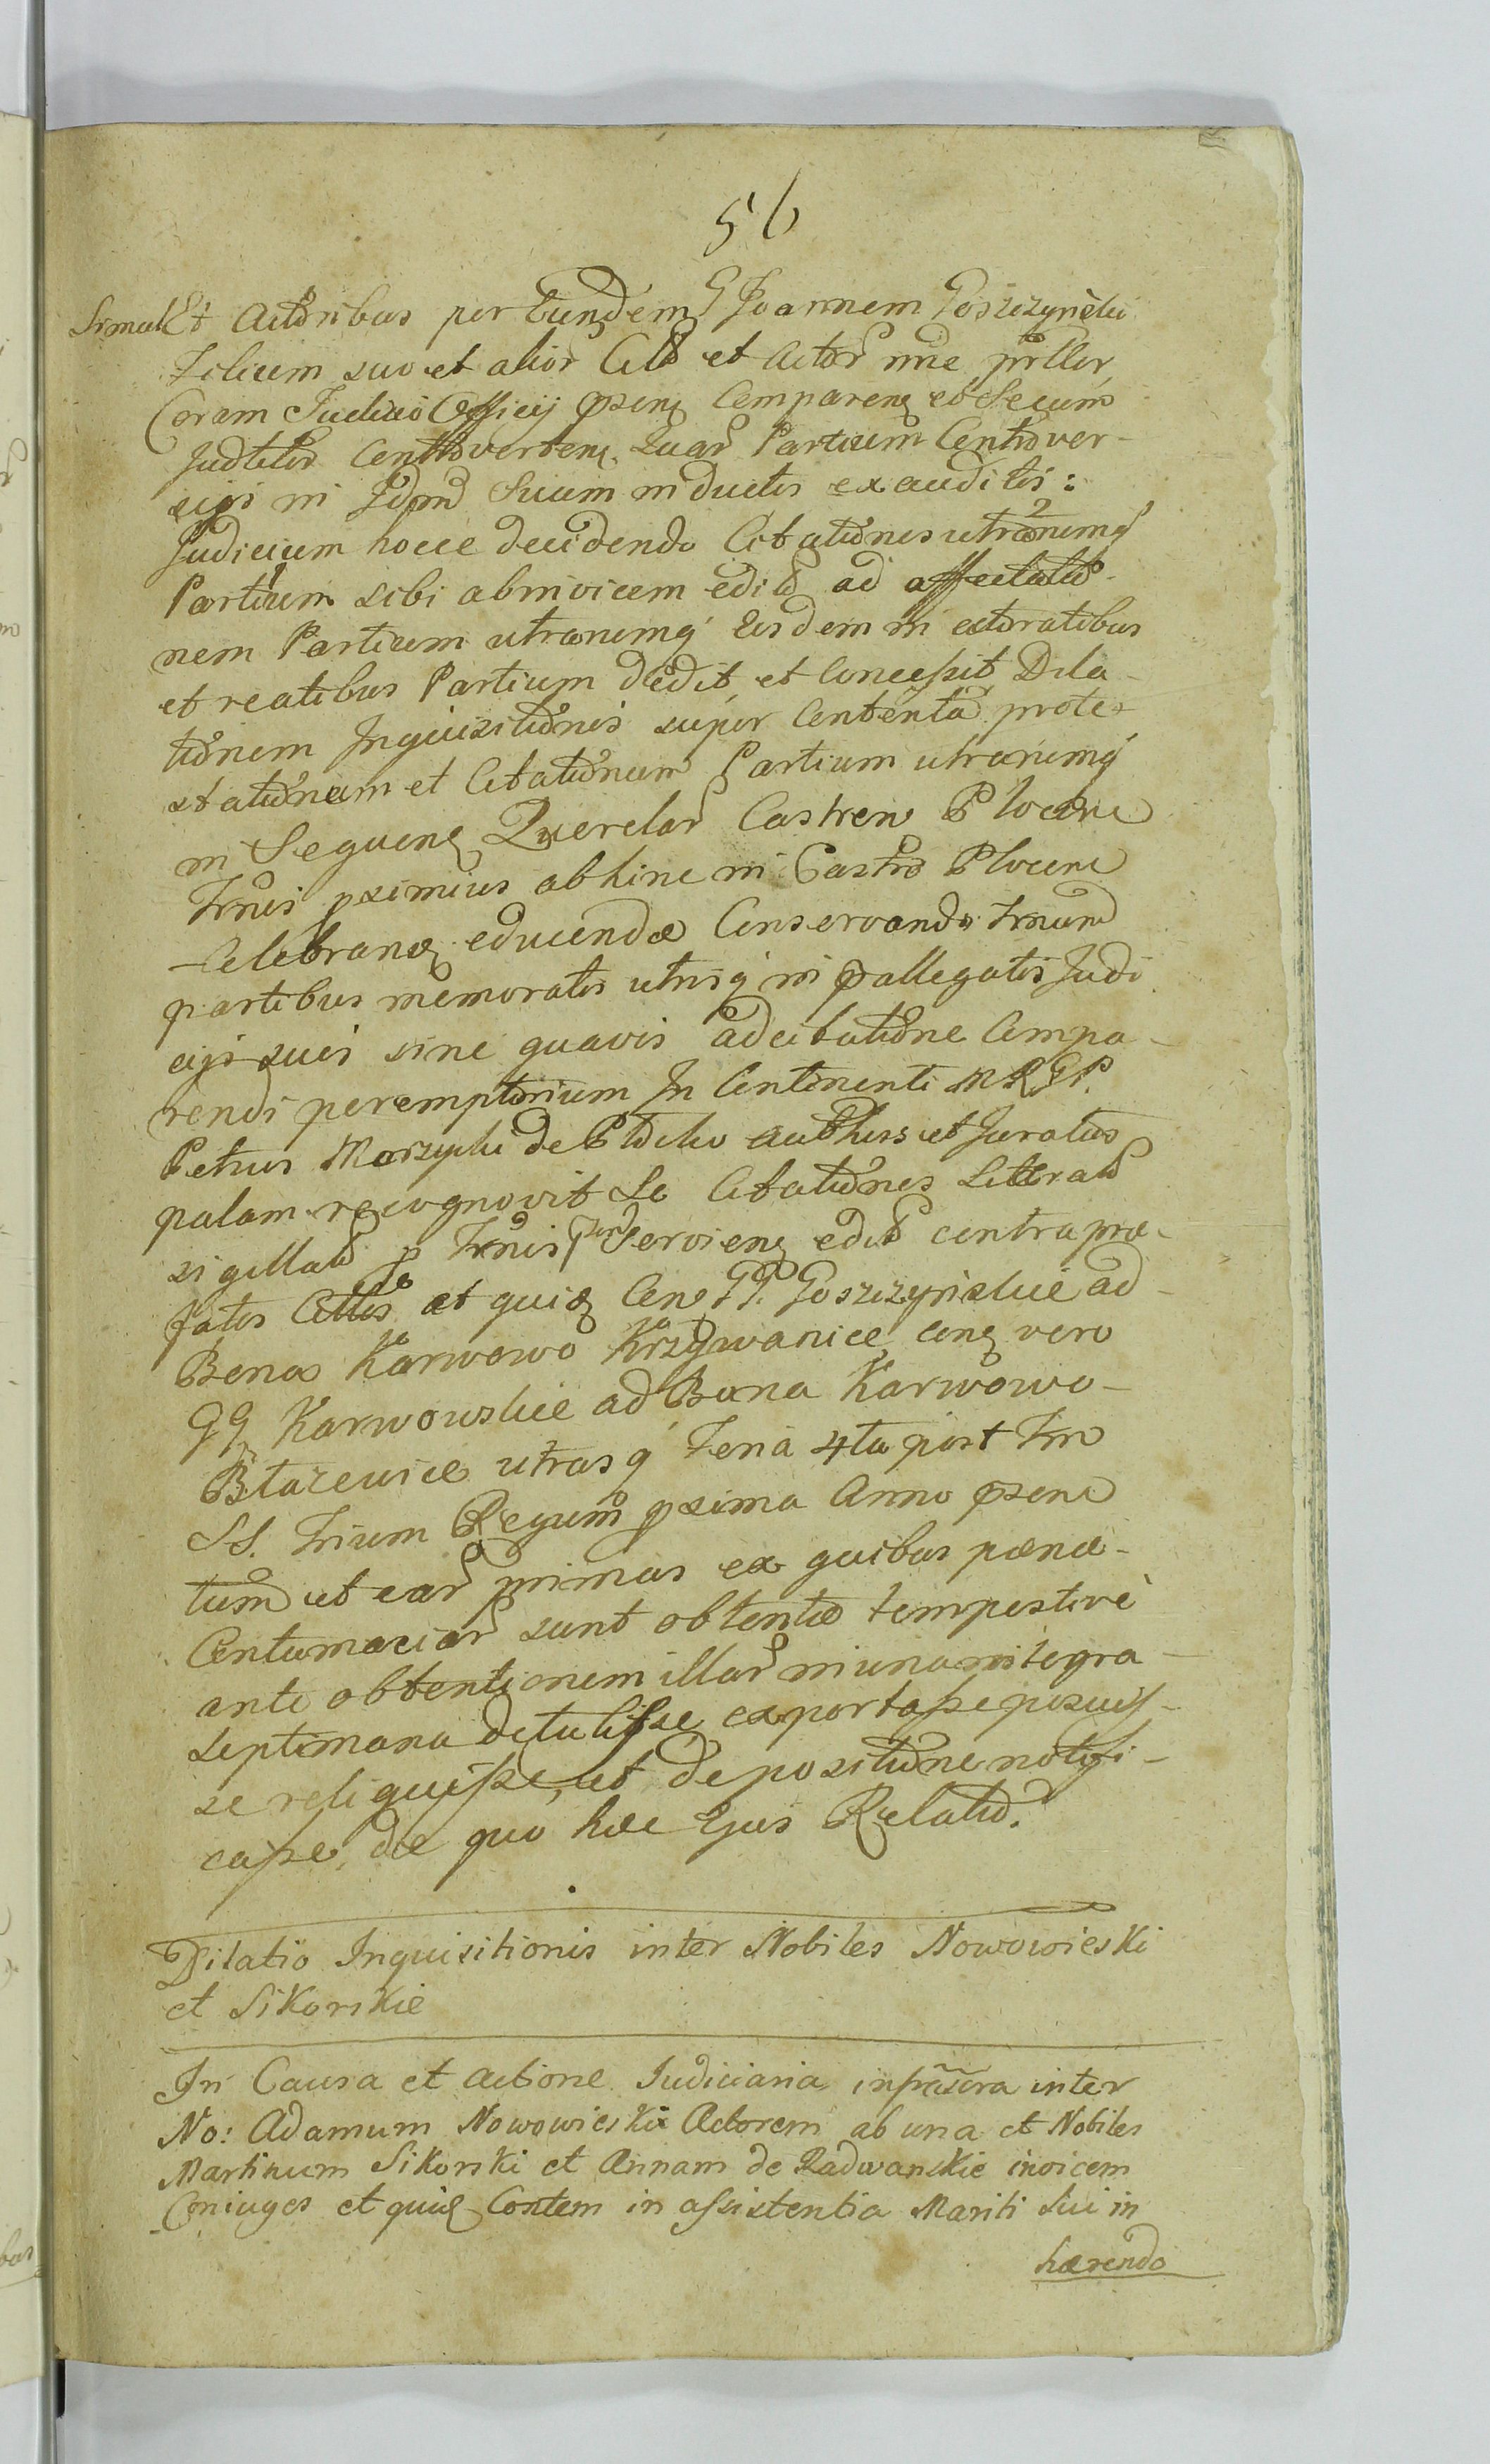 56
Simul Et Actoribus per Eundem G Joannem Goszczynski
Filium suo et alior Citt et Actor nne prllr
Coram Judicio Officij Psenq Comparenq eo Secum
Judtlr Controverten. Quar Partium Controver-
sijs in Idpnd Suum inductis exauditis:
Judicium hocce decidendo Citationes utrarumq
Partium sibi abinvicem edit ad affectatio-
nem Partium utrarumq Eisdem in actoratibus
et reatibus Partium dedit et Concessit Dila-
tionem Inquisitionis super Contenta prote-
stationum et Citationum Partium utrarumq
in Sequenq Querelar Castren Plocen
Trnis pximius abhinc in Castro Plocen
Celebranq educenda Conservando trnum
partibus memoratis utrisq in Pallegatis Judi
cijs suis sine quavis adcitatione Compa-
rendi peremptorium In Continenti MRGP.
Petrus Marzycki de Plocko authus et Juratus
palam recognovit Se Citationes Literat
sigillat p Trnis Servienq edit contra prae-
fatos Cittos et quidq Con GG. Goszczynskie ad
Bona Karwowo Krzywanice, conq vero
GG Karwowskie ad Bona Karwowo-
Blazewice utrasq Feria 4ta post Frn
SS. Trium Regum pxima Anno Psen
tum et ear primas ex quibus paenae
Contumaciar sunt obtentae tempestivè
ante obtentionem illar in una integra
septimana detulisse exportasse posuis-
se reliquisse, et de positione notifi-
casse, de quo hac Ejus Relatio.
Dilatio Inquisitionis inter Nobiles Nowowieski
et Sikorskie
In Causa et Actione Judiciaria infrascra inter
No: Adamum Nowowieski Actorem ab una et Nobiles
Martinum Sikorski et Annam de Radwanskie invicem
Coniuges et quidq Contem in assistentia Mariti Sui in
haerendo